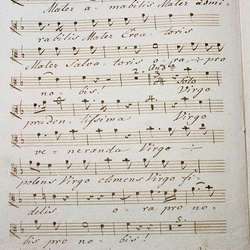 Mater a_mabilis Mater admi_
rabilis Mater Crea_toris
Mater Salva_toris ora_pro
Solo
no_bis! Virgo
prudentissima Virgo
ve_neranda Virgo
potens Virgo clemens Virgo fi_
delis o_ra pro no_
bis pro no_bis!